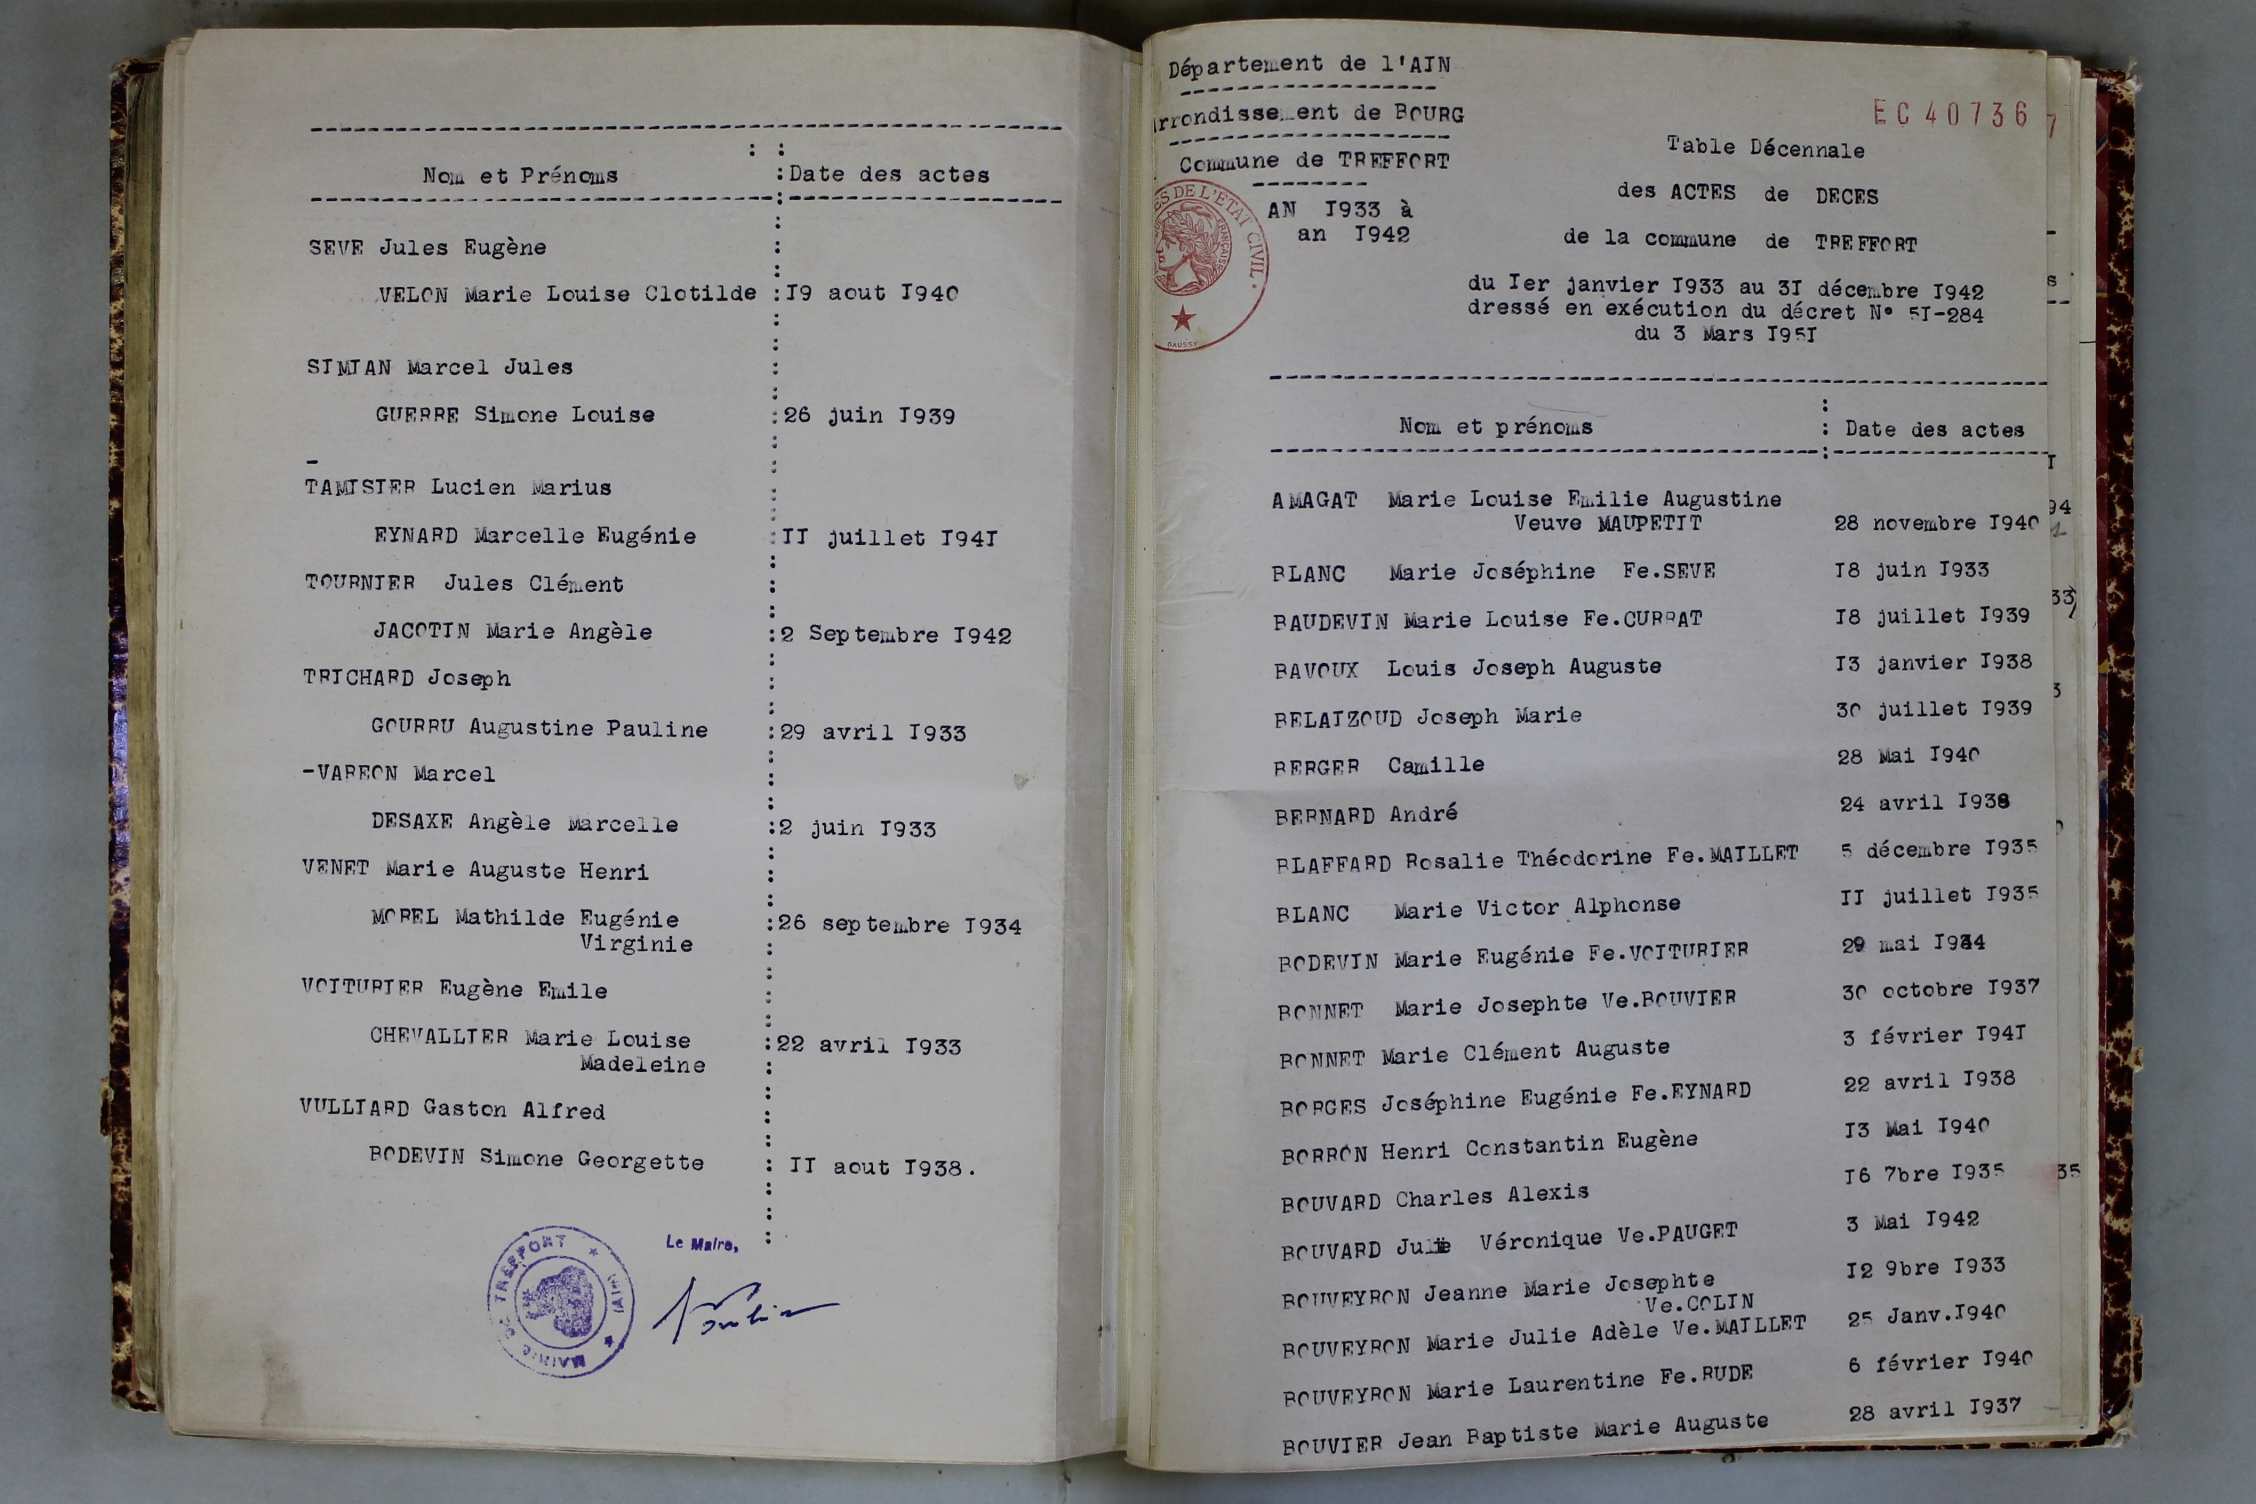 Nom et Prénoms : Date des actes
SEVE Jules Eugène
VELON Marie Louise Clotilde : I9 aout I940
SIMIAN Marcel Jules
GUERRE Simone Louise : 26 juin I939
TAMISIER Lucien Marius
EYNARD Marcelle Eugénie : II juillet I94I
TOURNIER Jules Clément
JACOTIN Marie Angèle : 2 Septembre I942
TRICHARD Joseph
GOURRU Augustine Pauline : 29 avril I933
-VAREON Marcel
DESAXE Angèle Marcelle : 2 juin I933
VENET Marie Auguste Henri
MOREL Mathilde Eugénie : 26 septembre I934
Virginie
VOITURIER Eugène Emile
CHEVALLIER Marie Louise : 22 avril I933
Madeleine
VULLIARD Gaston Alfred
BODEVIN Simone Georgette : II aout I938.
Le Maire,
MAIRIE DE TREFFORT (AIN)
Département de l'AIN
Arrondissement de BOURG
Commune de TREFFORT
AN I933 à
an I942
DE L'ETAT CIVIL
EC 40736
Table Décennale
des ACTES de DECES
de la commune de TREFFORT
du Ier janvier I933 au 3I décembre I942
dressé en exécution du décret N° 5I-284
du 3 Mars I95I
Nom et prénoms : Date des actes
AMAGAT Marie Louise Emilie Augustine
Veuve MAUPETIT 28 novembre I940
BLANC Marie Joséphine Fe.SEVE I8 juin I933
BAUDEVIN Marie Louise Fe.CURRAT I8 juillet I939
BAVOUX Louis Joseph Auguste I3 janvier I938
BELAIZOUD Joseph Marie 30 juillet I939
BERGER Camille 28 Mai I940
BERNARD André 24 avril I938
BLAFFARD Rosalie Théodorine Fe.MAILLET 5 décembre I935
BLANC Marie Victor Alphonse II juillet I935
BODEVIN Marie Eugénie Fe.VOITURIER 29 mai I934
BONNET Marie Josephte Ve.BOUVIER 30 octobre I937
BONNET Marie Clément Auguste 3 février I94I
BORGES Joséphine Eugénie Fe.EYNARD 22 avril I938
BORRON Henri Constantin Eugène I3 Mai I940
BOUVARD Charles Alexis I6 7bre I935
BOUVARD Julie Véronique Ve.PAUGET 3 Mai I942
BOUVEYRON Jeanne Marie Josephte I2 9bre I933
Ve.COLIN
BOUVEYRON Marie Julie Adèle Ve.MAILLET 25 Janv.I940
BOUVEYRON Marie Laurentine Fe.RUDE 6 février I940
BOUVIER Jean Baptiste Marie Auguste 28 avril I937